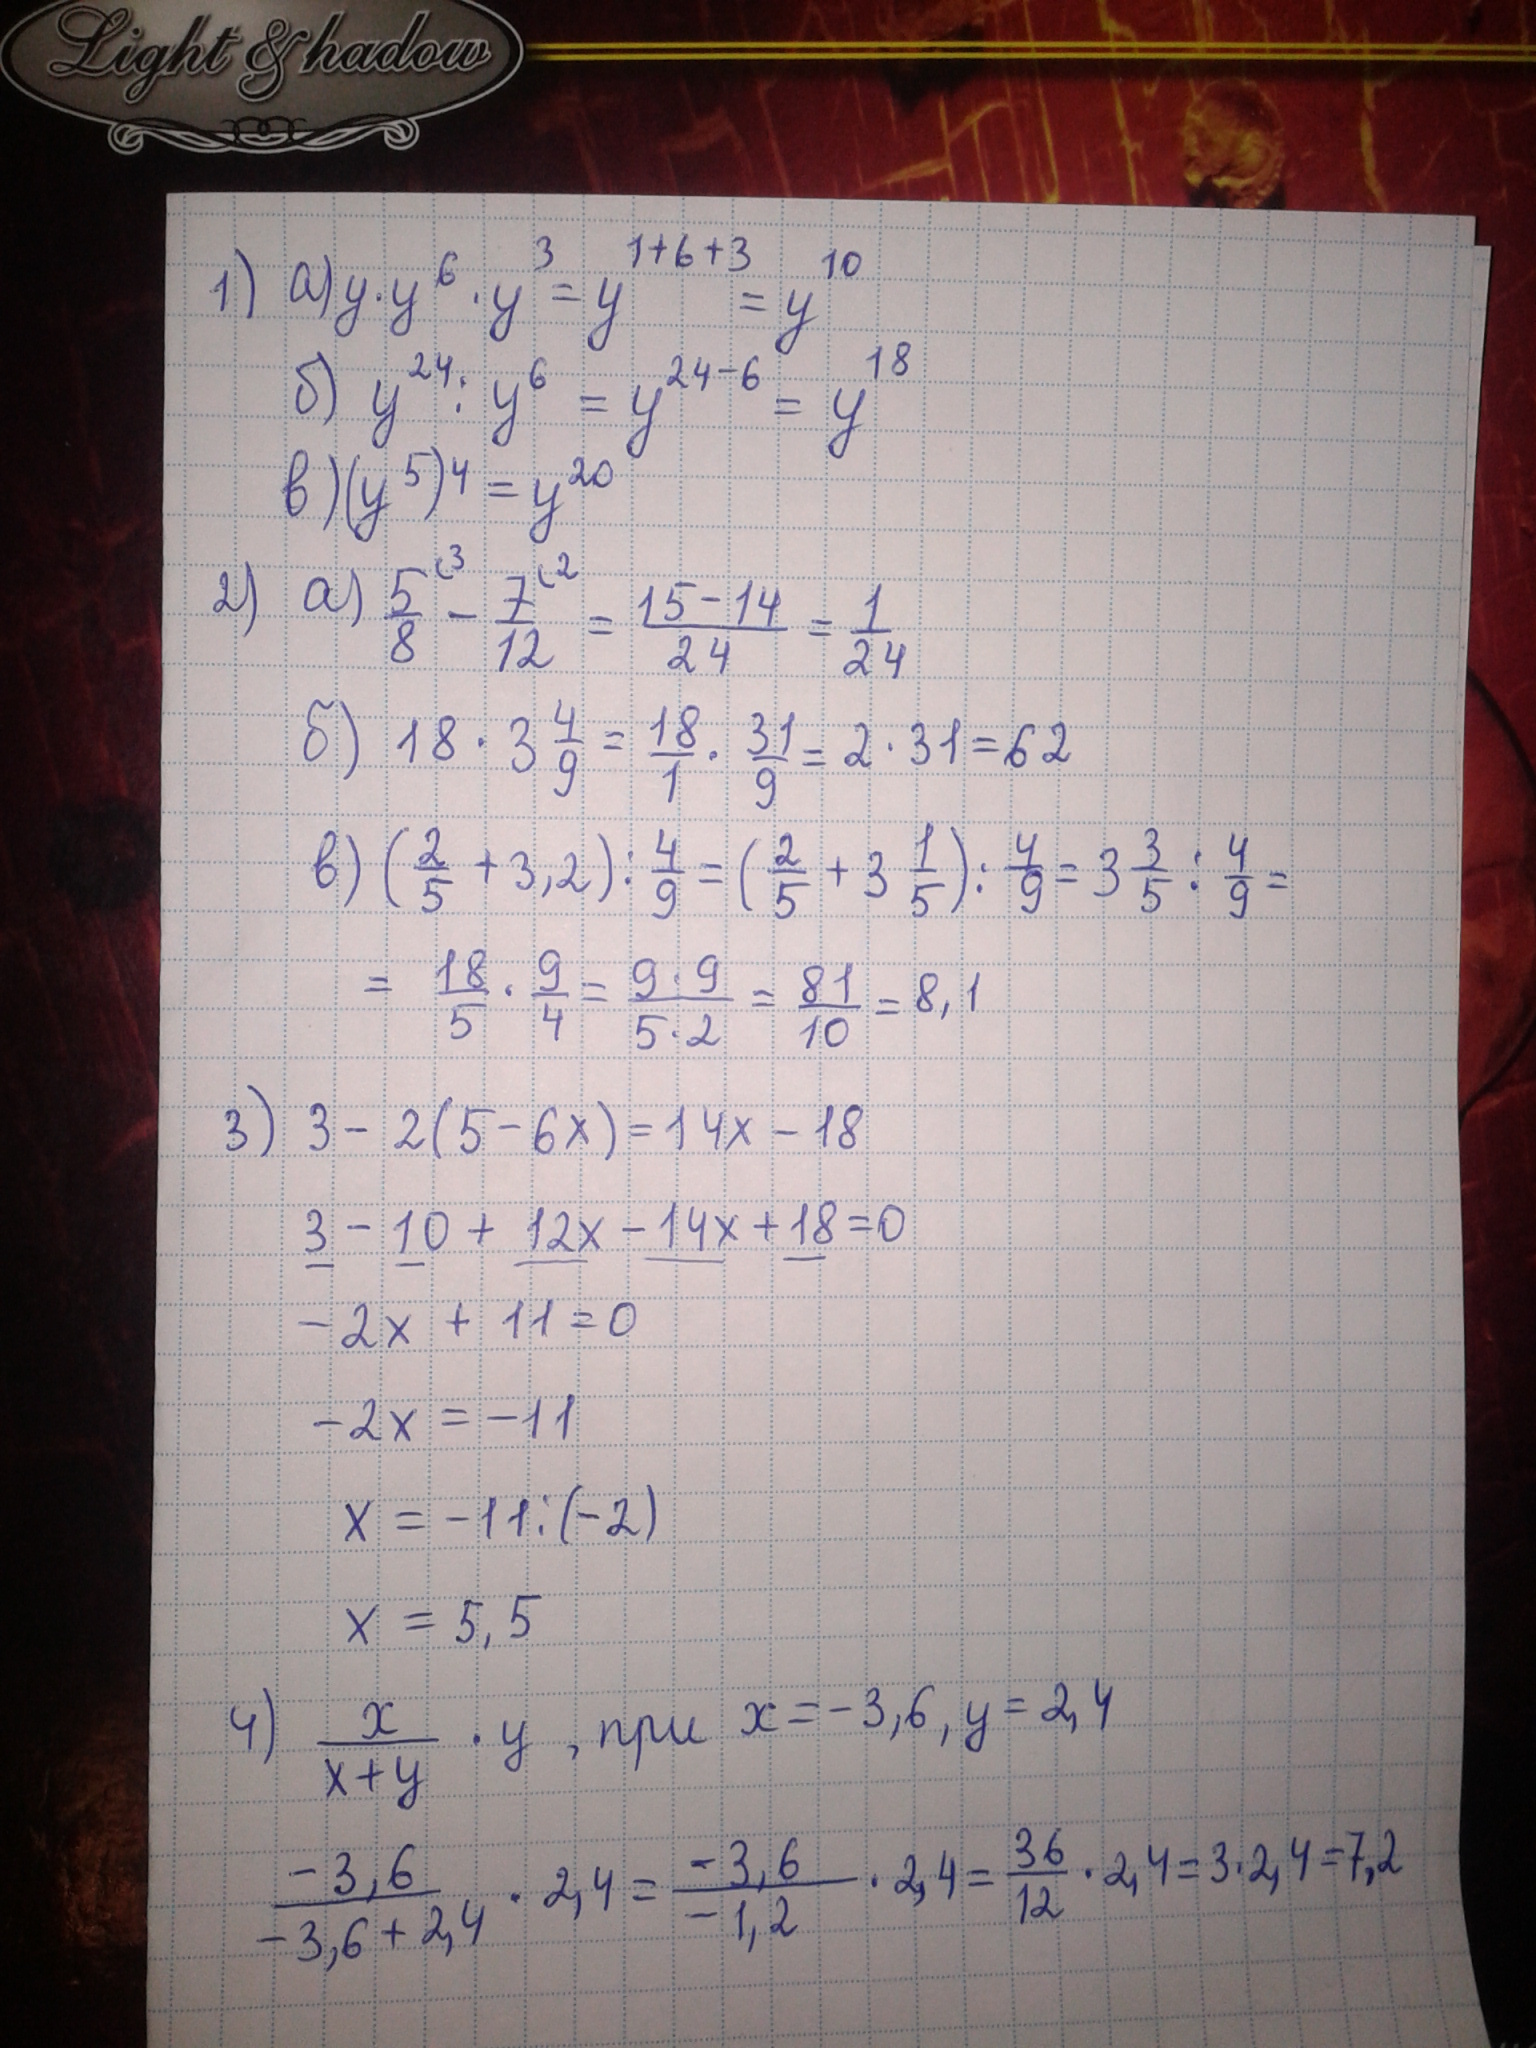 Light & Shadow
1) а) y · y⁶ · y³ = y¹⁺⁶⁺³ = y¹⁰
б) y²⁴ : y⁶ = y²⁴⁻⁶ = y¹⁸
в) (y⁵)⁴ = y²⁰
2) а) 5/8 ⁽³ - 7/12 ⁽² = (15-14)/24 = 1/24
б) 18 · 3 4/9 = 18/1 · 31/9 = 2 · 31 = 62
в) (2/5 + 3,2) : 4/9 = (2/5 + 3 1/5) : 4/9 = 3 3/5 : 4/9 =
= 18/5 · 9/4 = (9·9)/(5·2) = 81/10 = 8,1
3) 3 - 2(5-6x) = 14x - 18
3 - 10 + 12x - 14x + 18 = 0
-2x + 11 = 0
-2x = -11
x = -11 : (-2)
x = 5,5
4) x/(x+y) · y, при x = -3,6, y = 2,4
-3,6/(-3,6+2,4) · 2,4 = -3,6/-1,2 · 2,4 = 36/12 · 2,4 = 3·2,4 = 7,2